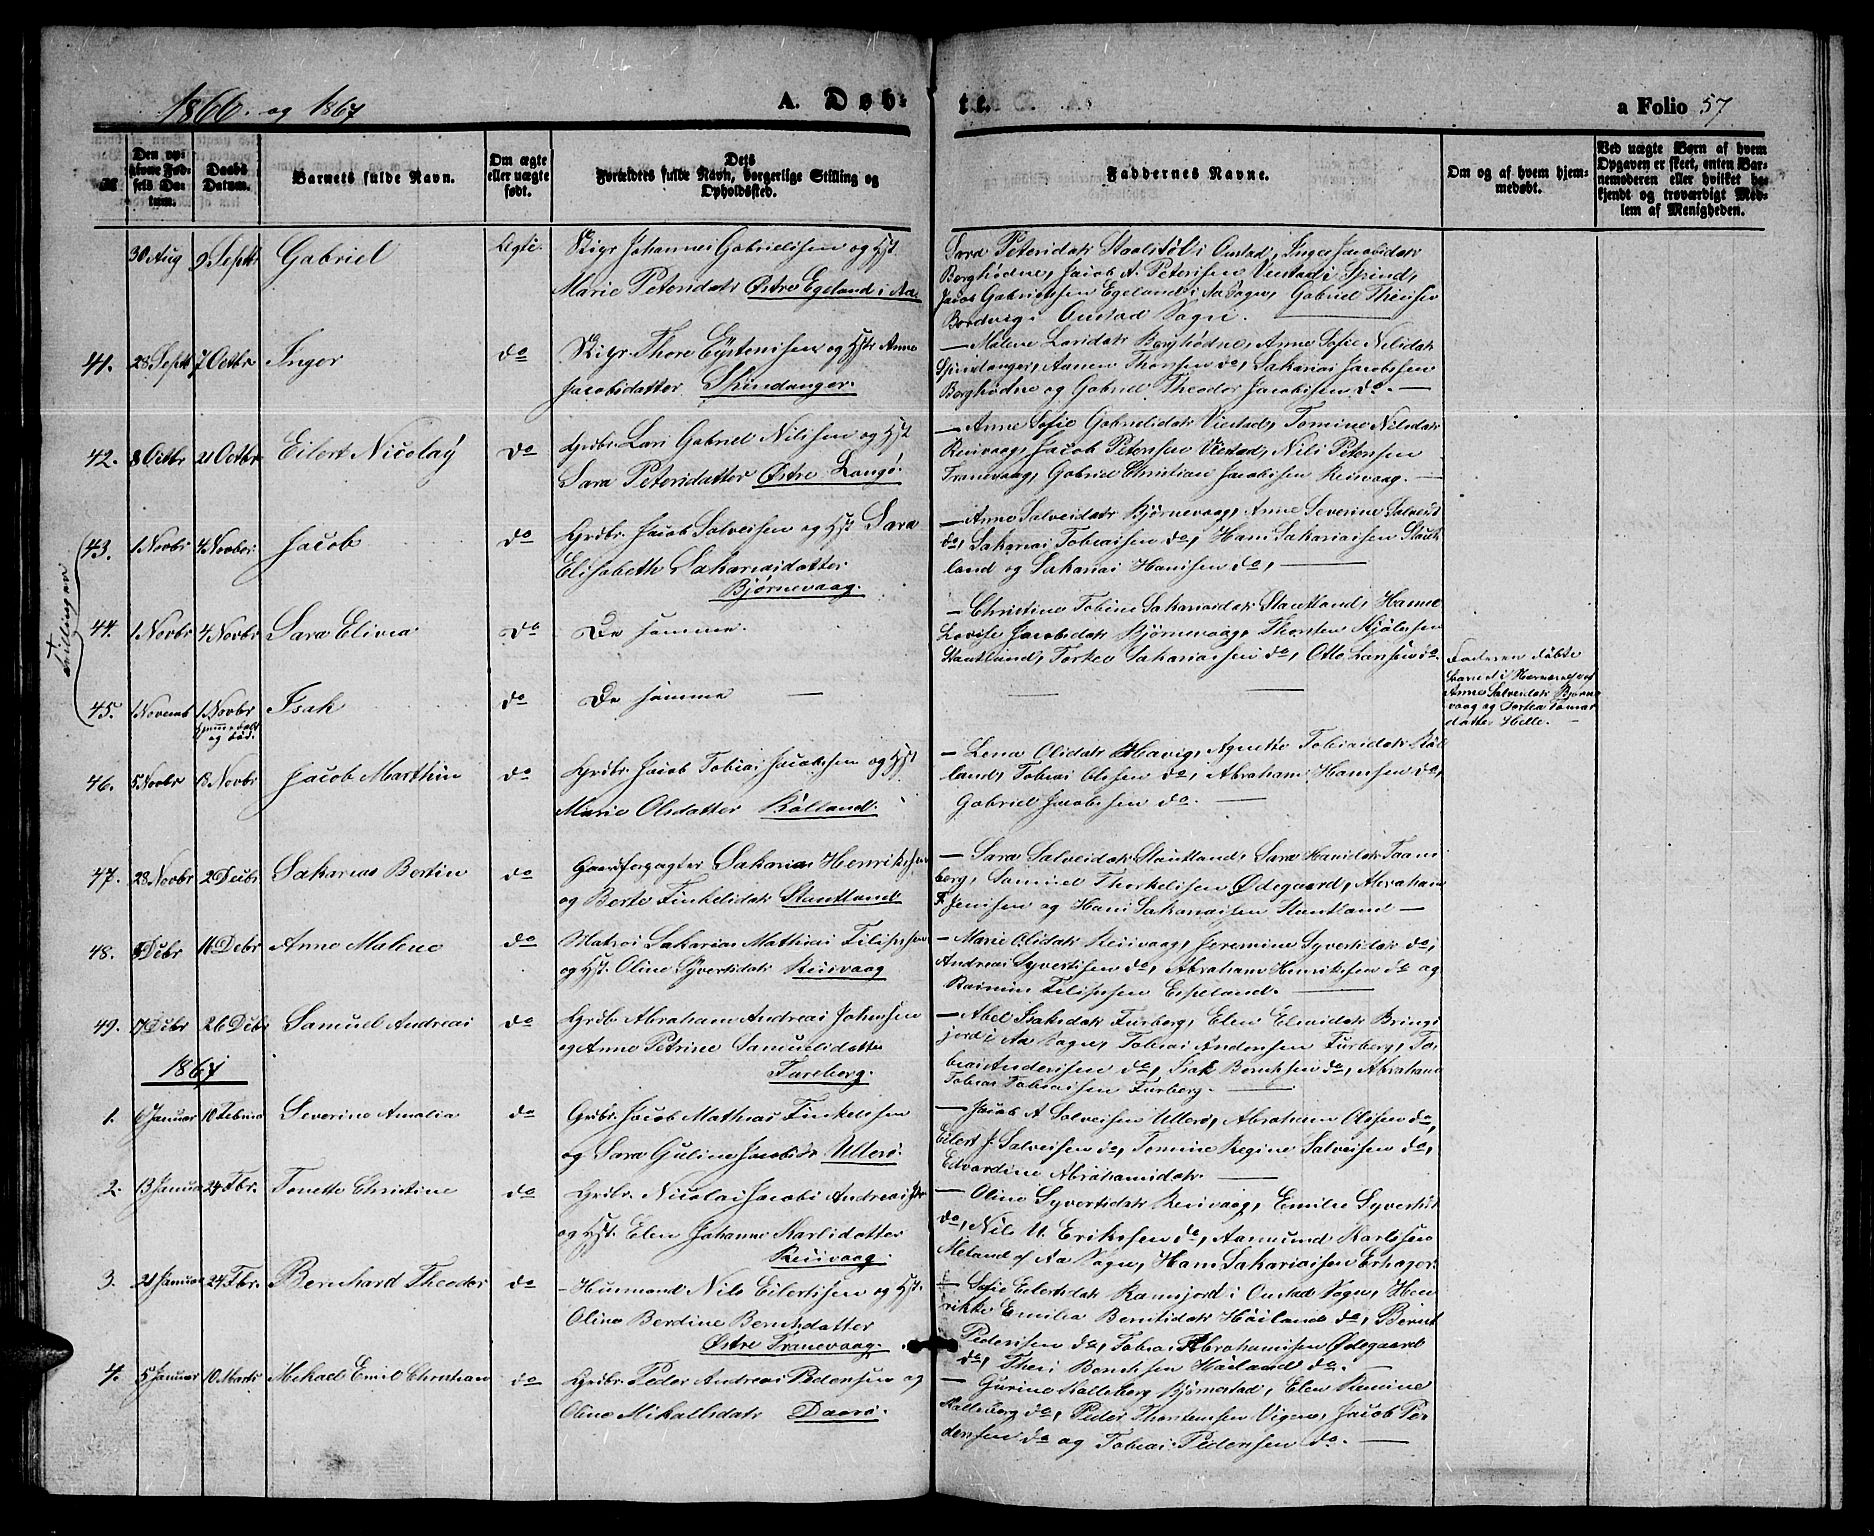 1866. og 1867 A. Døb- te. a Folio 57
№ Den opgivne Fødsels Datum. Daabs Datum. Barnets fulde Navn. Om ægte eller uægte født. Dets Forældres fulde Navn, borgerlige Stilling og Opholdssted. Faddernes Navne. Om og af hvem hjemmedøbt. Ved uægte Børn af hvem Opgaven er skeet, enten Barnemoderen eller hvilket bekjendt og troværdigt Medlem af Menigheden.
30 Aug 9 Septbr Gabriel Ægte.
Johannes Gabrielsen og Hst
Marie Petersdatr Østre Egeland i Aa
Sara Petersdatr i Oustad, Inger Jacobsdatr
Borghødne, Jacob A. Petersen Viestad i Spind,
Jacob Gabrielsen Egeland i Aa Sogn, Gabriel
Oustad Sogn.
41. 28 Septbr 7 Octbr Inger do
Thore Eystensen og Hst Anne
Jacobsdatter Spindanger.
— Malene Larsdatr Borghødne, Anne Sofie Nilsdatr
Spindanger, Aanen Thorsen do, Sakarias Jacobsen
Borghødne og Gabriel Theodor Jacobsen do. —
42. 8 Octbr 21 Octbr Eilert Nicolay do
Grdbr. Lars Gabriel Nilsen og Hst
Sara Petersdatter Østre Langø.
— Anne Sofie Gabrielsdatr Viestad, Tomine Nilsdatr
Reisvaag, Jacob Petersen Viestad, Nils Petersen
Tranevaag, Gabriel Christian Jacobsen Reisvaag. —
Trillinger
43. 1 Novbr 4 Novber Jacob do
Grdbr. Jacob Salvesen og Hst Sara
Elisabeth Sakariasdatter
Bjørnevaag.
— Anne Salvesdatr Bjørnevaag, Anne Severine Salvesd
do, Sakarias Tobiassen do, Hans Sakariassen Stautland
og Sakarias Hansen do, —
44. 1 Novbr 4 Novbr Sara Elisea do
De samme.
— Christine Tobine Sakariasdatr Stautland, Hanne
Lovise Jacobsdatr Bjørnevaag, Thorsten
Stautland, Torkel Sakariassen do, Otto Larsen do.
45. 1 Novemb 1 Novbr Isak do
Hjemmedøbt og død.
De samme — — —
Faderen døbte
Barnet i Nærværelse af
Anne Salvesdatr Bjørnevaag
og
datter Helle. —
46. 5 Novbr 18 Novbr Jacob Marthin do
Grdbr. Jacob Tobias Jacobsen og Hst
Marie Olsdatter Rølland.
— Lena Olsdatr Havig, Agnethe Tobiasdatr Røl
land, Tobias Olsen do, Abraham Hansen do,
Gabriel Jacobsen do. —
47. 28 Novbr 2 Decbr Sakarias Bertin do
Gaardforpagter Sakarias Henriksen
og Berte Finkelsdatr Stautland
— Sara Salvesdatr Stautland, Sara Hansdatr
berg, Samuel Thorkelsen Ødegaard, Abraham
F. Jensen og Hans Sakariassen Stautland —
48. 9 Decbr 16 Decbr Anne Malene do
Matros Sakarias Mathias Filipsen
og Hst. Oline Syvertsdatr Reisvaag
— Marie Olsdatr Reisvaag, Jeremine Syvertsdatr do,
Andreas Syvertsen do, Abraham Henriksen do og
Rasmus Filipsen Espeland. —
49. 17 Decbr 26 Decbr Samuel Andreas do
Grdbr. Abraham Andreas Johnsen
og Anne Petrine Samuelsdatter
Fareberg.
— Abel Isaksdatr Furberg, Elen Eliasdatr Brings
jord i Aa Sogn, Tobias Andersen Furberg, To
bias Andersen do, Isak Berntsen do, Abraham
Tobias Tobiassen Furberg. —
1867
1. 6 Januar 10 Februar Severine Amalia do
Grdbr. Jacob Mathias Finkelsen
og Sara Guline Jacobsdr Ullerø.
— Jacob A Salvesen Ullerø, Abraham Olsen do,
Eilert J. Salvesen do, Tomine Regine Salvesen do,
Edvardine Abrahamsdatr. —
2. 13 Januar 24 Fbr. Tonette Christine do
Grdbr. Nicolai Jacobs Andreas
og Hst. Elen Johanne Karlsdatter
Reisvaag.
— Oline Syvertsdatr Reisvaag, Emilie Syvertsdr
do, Nils M. Eriksen do, Aamund Karlsen
Meland af Aa Sogn, Hans Sakariassen
3. 21 Januar 24 Fbr. Bernhard Theodor do
— Husmand Nils Eilertsen og Hst.
Oline Berdine Berntsdatter
Østre Tranevaag.
— Sofie Eilertsdatr Ramsjord i Oustad Sogn, Hen
rikke Emilia Berntsdatr Høiland do, Bernt
Pedersen do, Tobias Abrahamsen Ødegaard
do, Theis Berntsen Høiland do. —
4. 5 Januar 10 Marts Mikael Emil Christian do
Grdbr. Peder Andreas Pedersen og
Oline Mikalsdatr Daarø.
— Gurine Kalleberg Bjørnestad, Elen
Kalleberg do, Peder Thorstensen Vigen, Jacob Pe
dersen do og Tobias Pedersen do. —